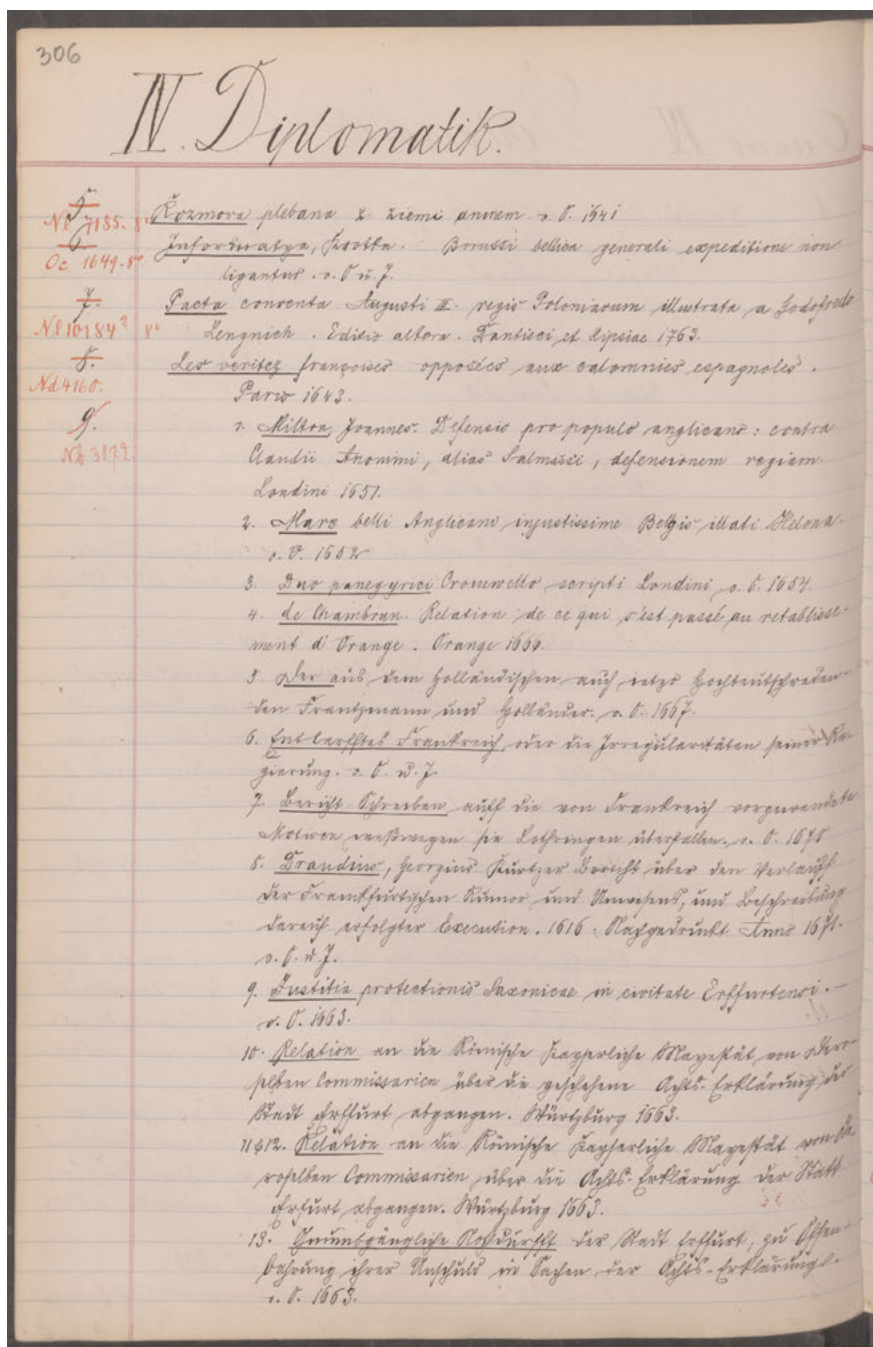 306
IV. Diplomatik.
5.
Nl 7185. 8°
Rozmova plebana z ziemi o. O. 1641
6
Oc 1649. 8°
Informatya, Krotka. Borussi bellica generali expeditione non
ligantur. o. O u. J.
7.
Nl 10184² 8°
Pacta conventa Augusti III. regis Poloniarum illustrata a Godofredo
Lengnich. Editio altera. Dantisci et Lipsiae 1763.
8.
Nd 4160.
Les veritez françoises opposées aux calomnies espagnoles.
Paris 1643.
9.
1. Milton, Joannes. Defensio pro populo anglicano: contra
Claudii Anonimi, alias Salmasii, defensionem regiam.
Londini 1651.
2. Mars belli Anglicani injustissime Belgis illati Helena.
o. O. 1652
3. Duo panegyrici Cromwello scripti Londini o. O. 1654.
4. de Chambrun. Relation de ce qui s'est passé au retablisse-
ment d'Orange. Orange 1666.
5. Der aus dem Holländischen auch ietzo Hochteutschreden-
den Frantzmann und Holländer. o. O. 1667.
6. Entlarfftes Frankreich, oder die Irregularitäten seiner Re-
gierung. o. O. u. J.
7. Bericht Schreiben auff die von Frankreich vorgewendete
Motiven weßwegen sie Lothringen überfallen. o. O. 1670
8. Draudius, Georgius. Kurtzer Bericht über den Verlauff
der Franckfurtischen Rumor und Unwesens, und Beschreibung
darauf erfolgter Execution. 1616. Nachgedruckt Anno 1671.
o. O. u. J.
9. Justitia protectionis Saxonicae in civitate Erffurtensi.
o. O. 1663.
10. Relation an die Römische Kayserliche Mayestät von Dero-
selben Commissarien über die geschehene Achts-Erklärung der
Stadt Erffurt abgangen. Würtzburg 1663.
11 & 12. Relation an die Römische Kayserliche Mayestät von De-
roselben Commissarien über die Achts-Erklärung der Statt
Erfurt abgangen. Würtzburg 1663.
13. Unumbgängliche Nothdurfft der Stadt Erffurt, zu Offen-
bahrung ihrer Unschuld in Sachen der Achts-Erklärung.
o. O. 1663.